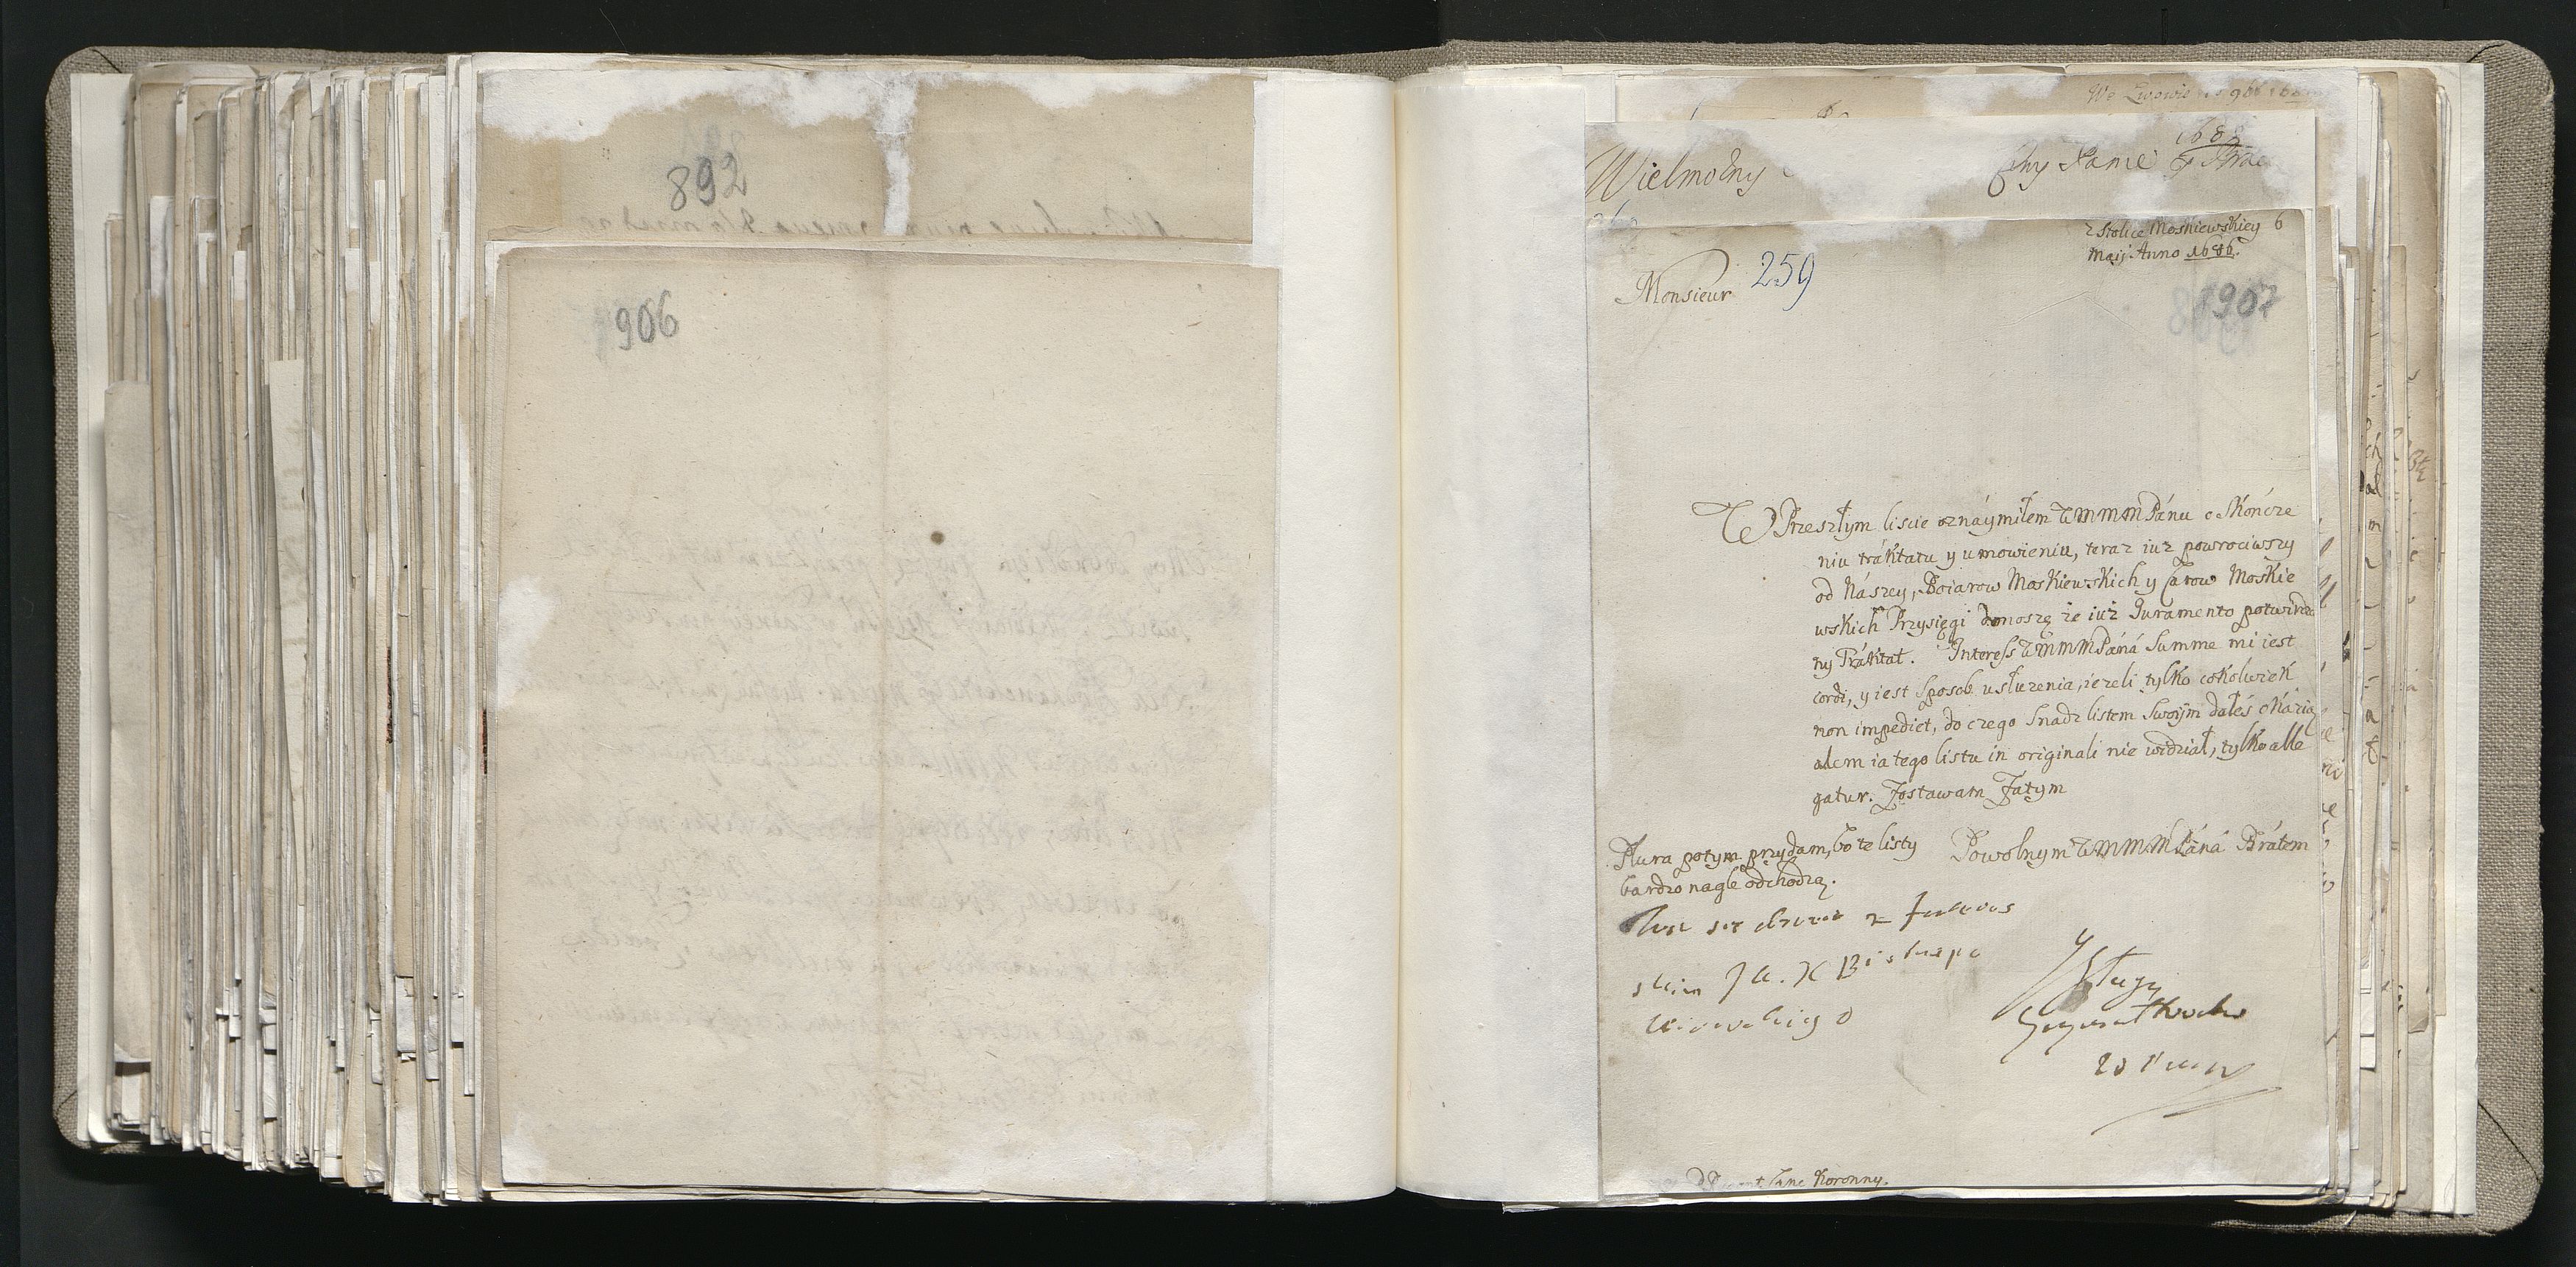 892
906
We Lwowie
1688
Wielmożny
Panie
z Stolice Moskiewskiey 6
Maij Anno 1686.
Monsieur 259
907
W Przeszłym liscie oznáymiłem WMMMPánu o skończe
niu tráktatu y umowieniu, teraz iuż powrociwszy
od Nászey, Boiarow Moskiewskich y Carow Moskie
wskich Przysięgi donoszę że iuż Juramento potwierdzo
ny Tráktat. Interess WMMMPáná Summe mi iest
cordi, y iest sposob usłużenia, ieżeli tylko cokolwiek
non impediet, do czego snadz listem swoijm dałeś okázią
alem ia tego listu in originali nie widział, tylko alle
gatur. Zostawam Zatym
Plura potym przydam, bo te listy
bardzo nagle odchodzą.
Powolnym WMMMPáná Brátem
y Sługą
Koronny.